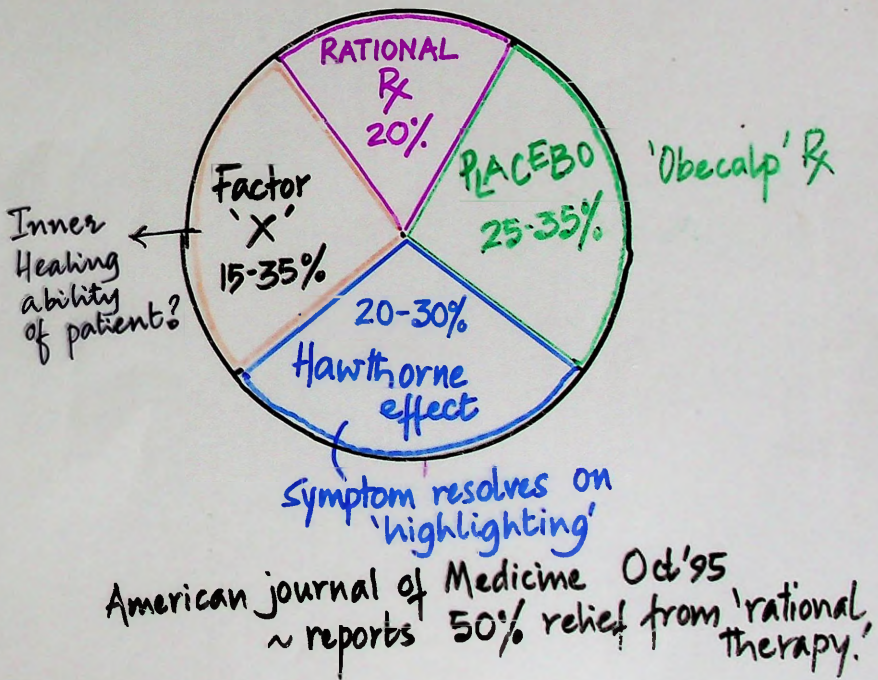 RATIONAL
Rx
20%
PLACEBO
25-35%
'Obecalp' Rx
Factor
'X'
15-35%
Inner
Healing
ability
of patient?
20-30%
Hawthorne
effect
Symptom resolves on
'highlighting'
American journal of Medicine Oct '95
~ reports 50% relief from 'rational
therapy.'